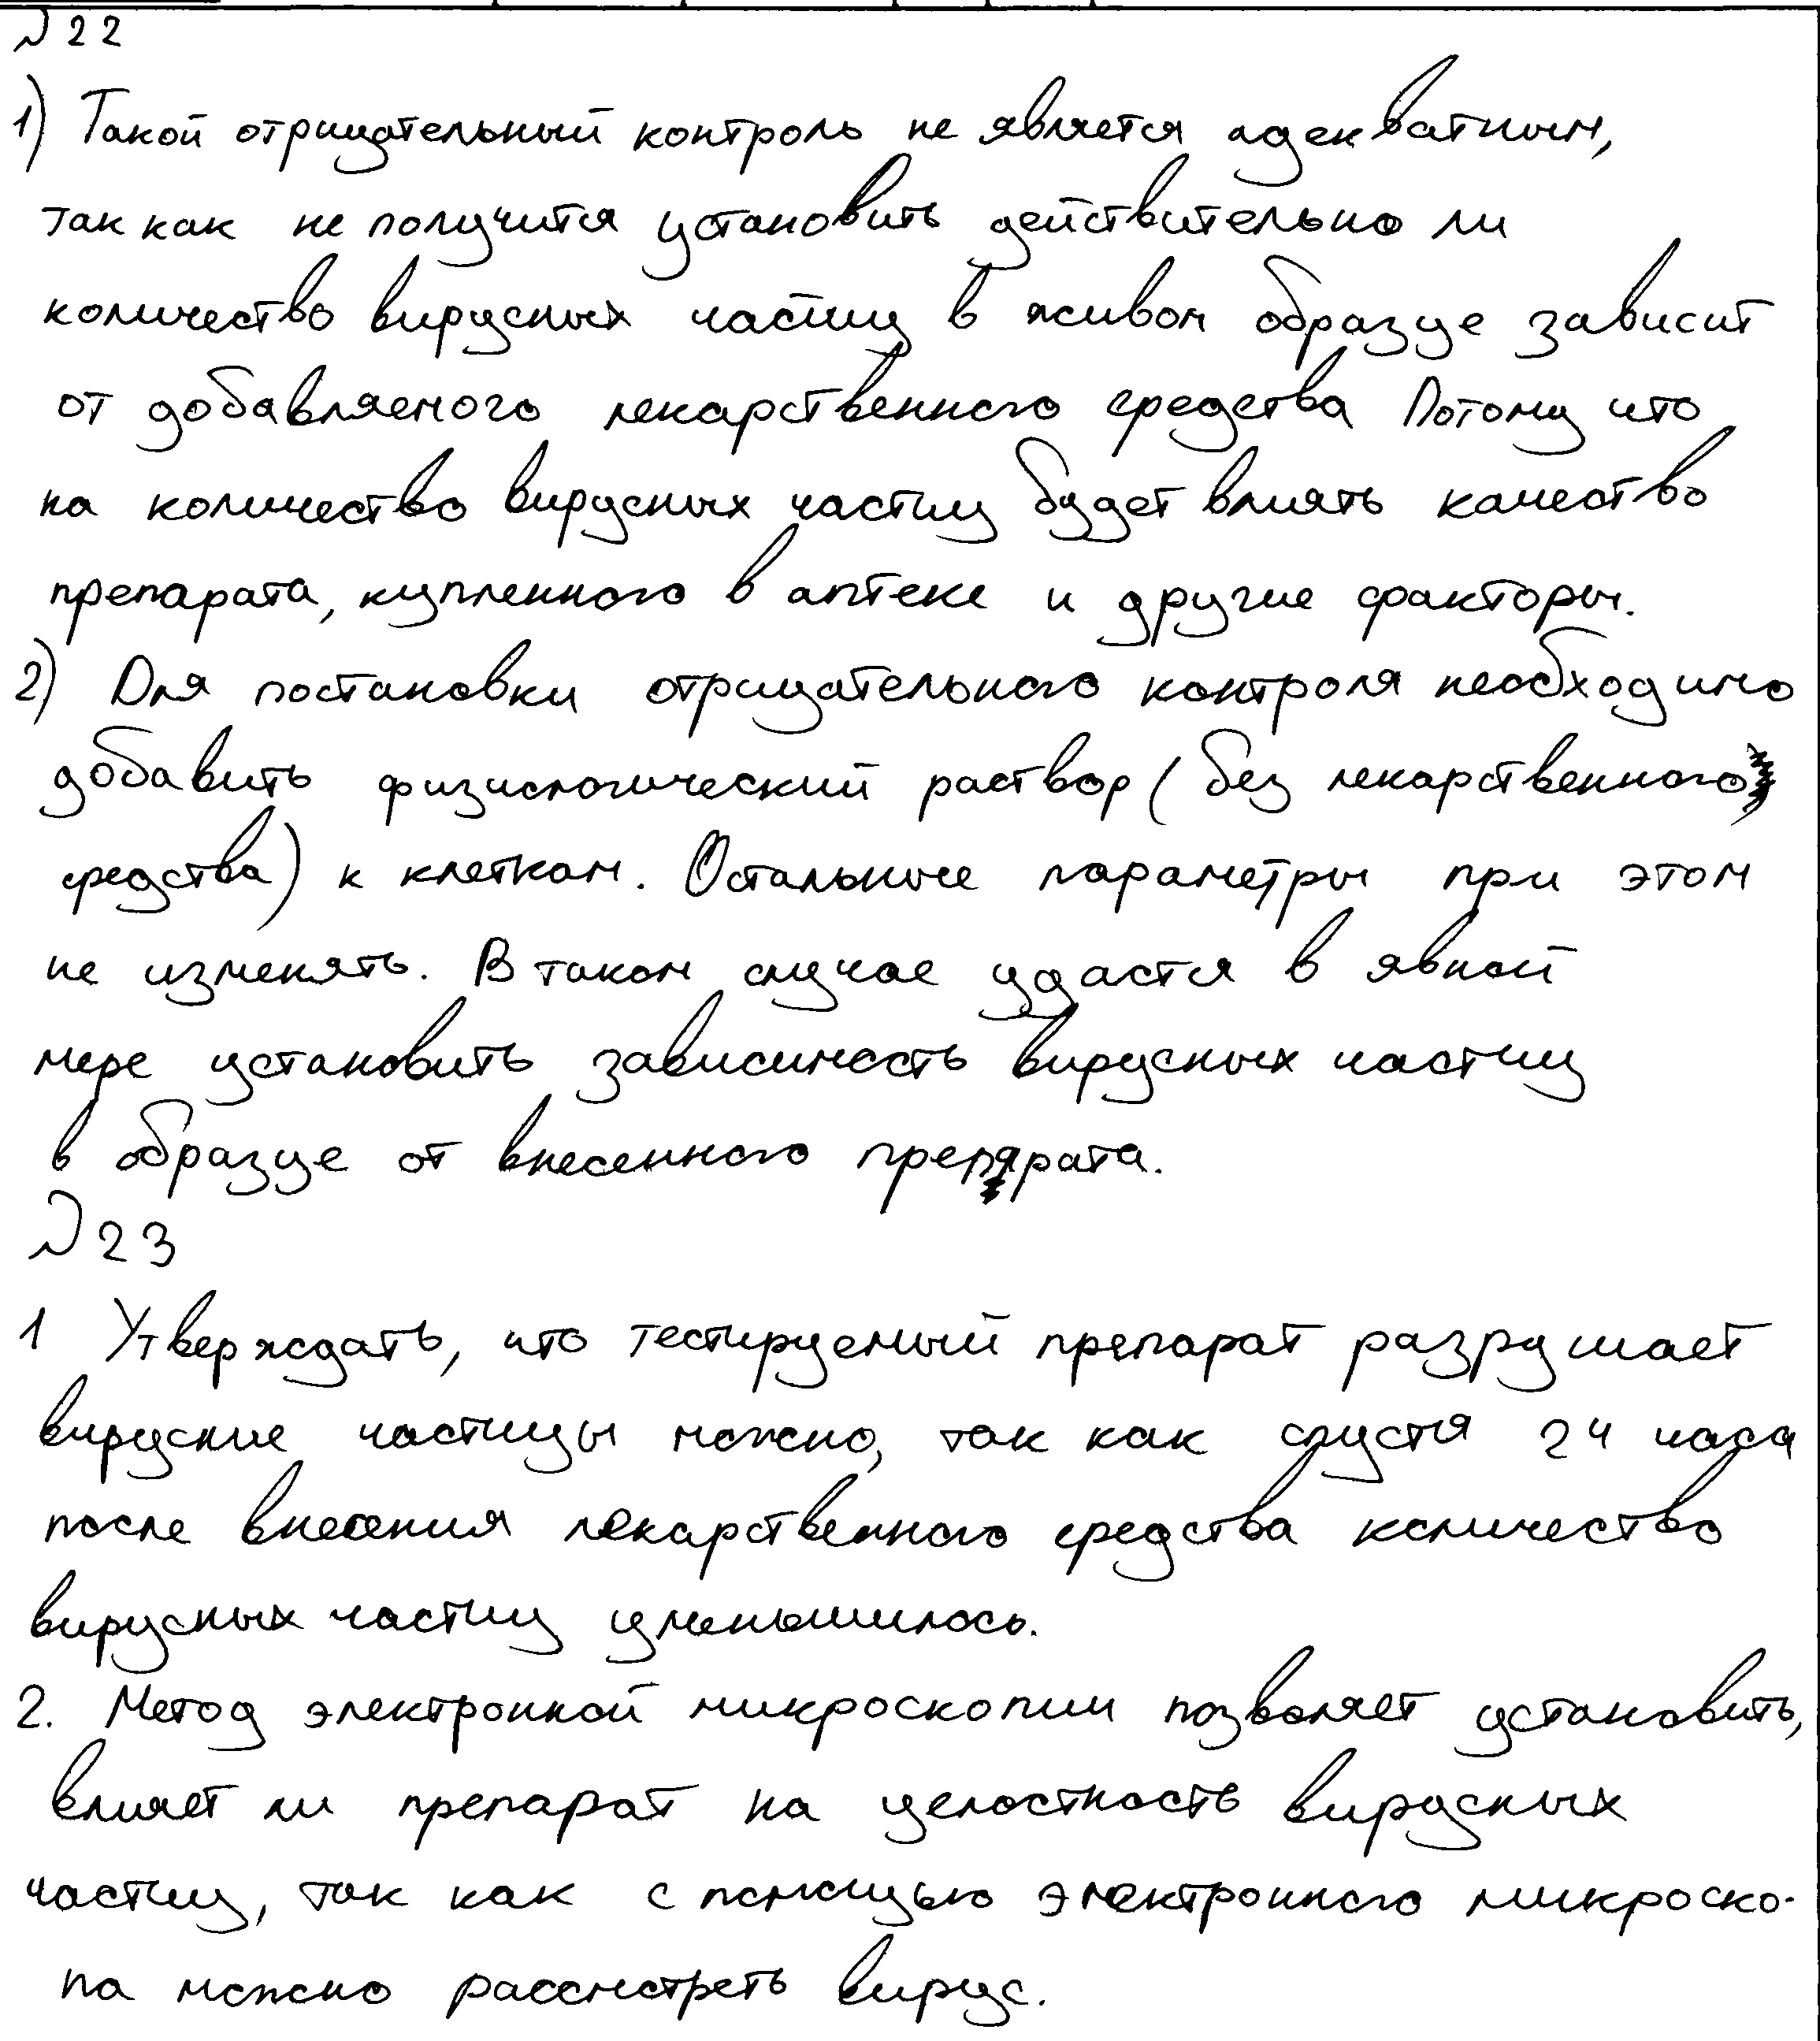 №22
1) Такой отрицательный контроль не является адекватным,
так как не получится установить действительно ли
количество вирусных частиц в живом образце зависит
от добавляемого лекарственного средства Потому что
на количество вирусных частиц будет влиять качество
препарата, купленного в аптеке и другие факторы.
2) Для постановки отрицательного контроля необходимо
добавить физиологический раствор (без лекарственного
средства) к клеткам. Остальные параметры при этом
не изменять. В таком случае удастся в явной
мере установить зависимость вирусных частиц
в образце от внесенного препарата.
№23
1 Утверждать, что тестируемый препарат разрушает
вирусные частицы можно, так как спустя 24 часа
после внесения лекарственного средства количество
вирусных частиц уменьшилось.
2. Метод электронной микроскопии позволяет установить,
влияет ли препарат на целостность вирусных
частиц, так как с помощью электронного микроско-
па можно рассмотреть вирус.